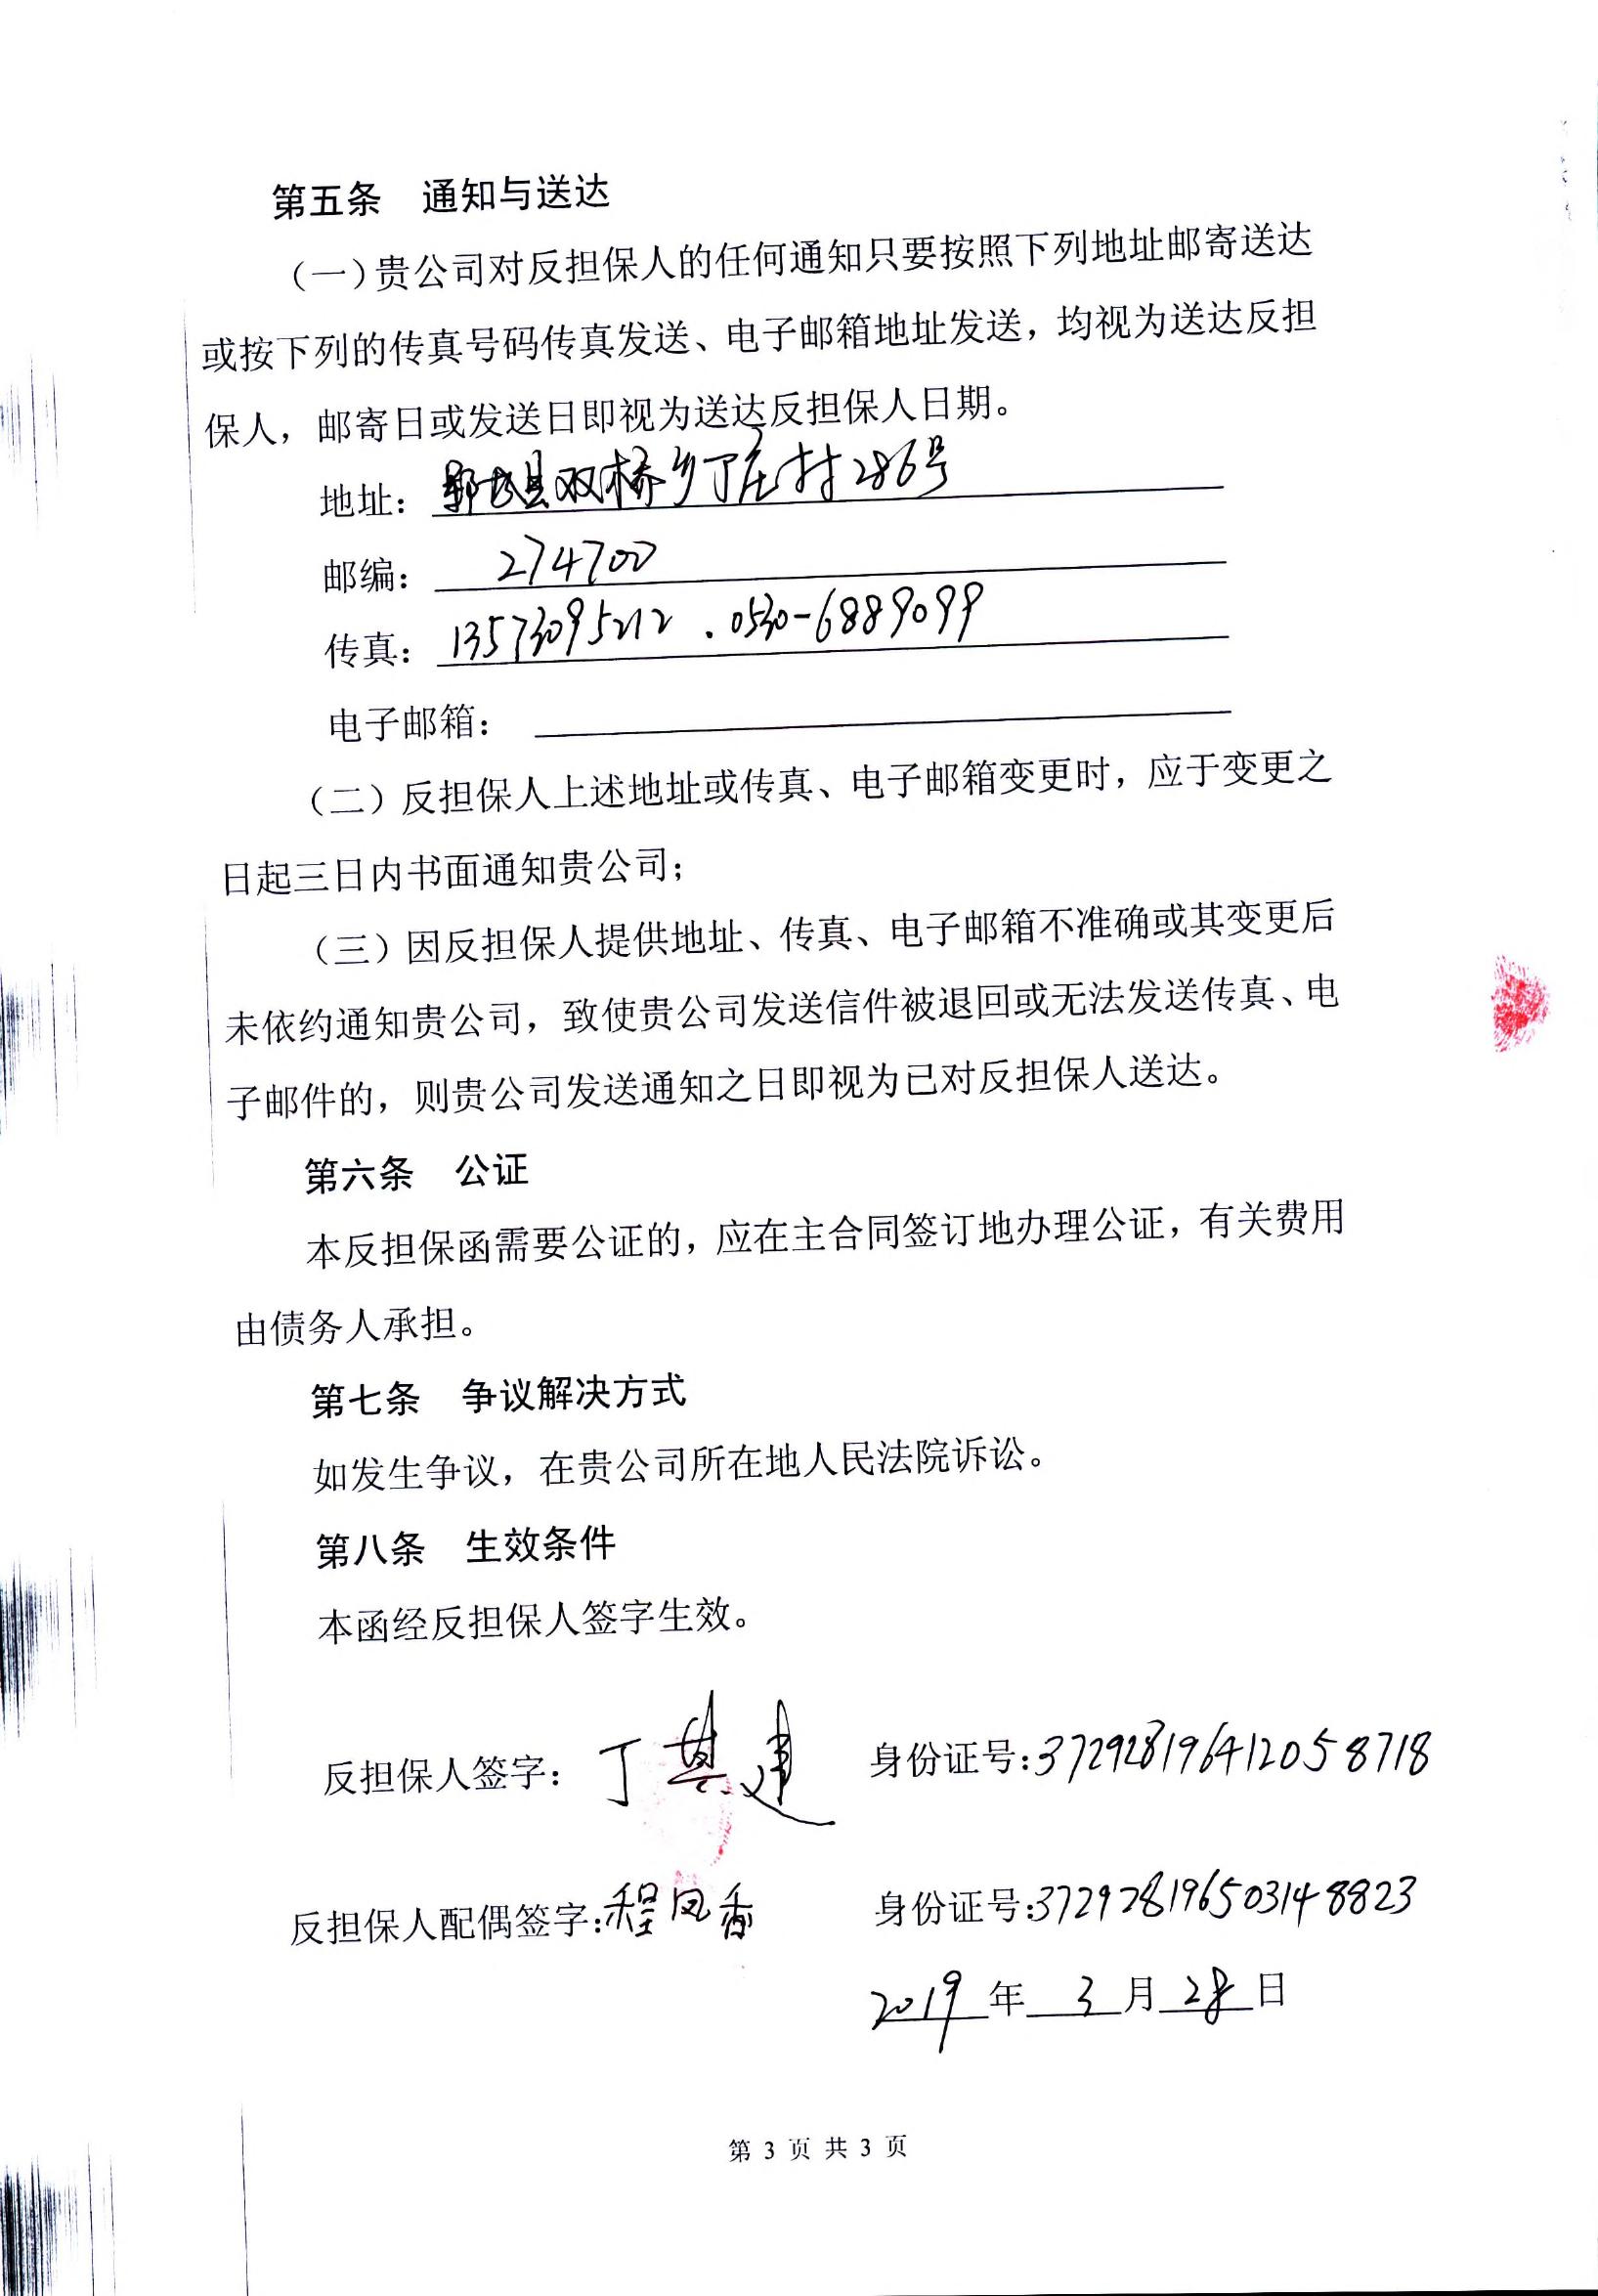 第五条 通知与送达
（一）贵公司对反担保人的任何通知只要按照下列地址邮寄送达
或按下列的传真号码传真发送、电子邮箱地址发送，均视为送达反担
保人，邮寄日或发送日即视为送达反担保人日期。
地址：郓城县双桥乡丁庄村286号
邮编：274700
传真：13573095212 . 0530-6889099
电子邮箱：
（二）反担保人上述地址或传真、电子邮箱变更时，应于变更之
日起三日内书面通知贵公司；
（三）因反担保人提供地址、传真、电子邮箱不准确或其变更后
未依约通知贵公司，致使贵公司发送信件被退回或无法发送传真、电
子邮件的，则贵公司发送通知之日即视为已对反担保人送达。
第六条 公证
本反担保函需要公证的，应在主合同签订地办理公证，有关费用
由债务人承担。
第七条 争议解决方式
如发生争议，在贵公司所在地人民法院诉讼。
第八条 生效条件
本函经反担保人签字生效。
反担保人签字：丁其建 身份证号：372928196412058718
反担保人配偶签字：程凤香 身份证号：372928196503148823
2019年3月28日
第 3 页 共 3 页